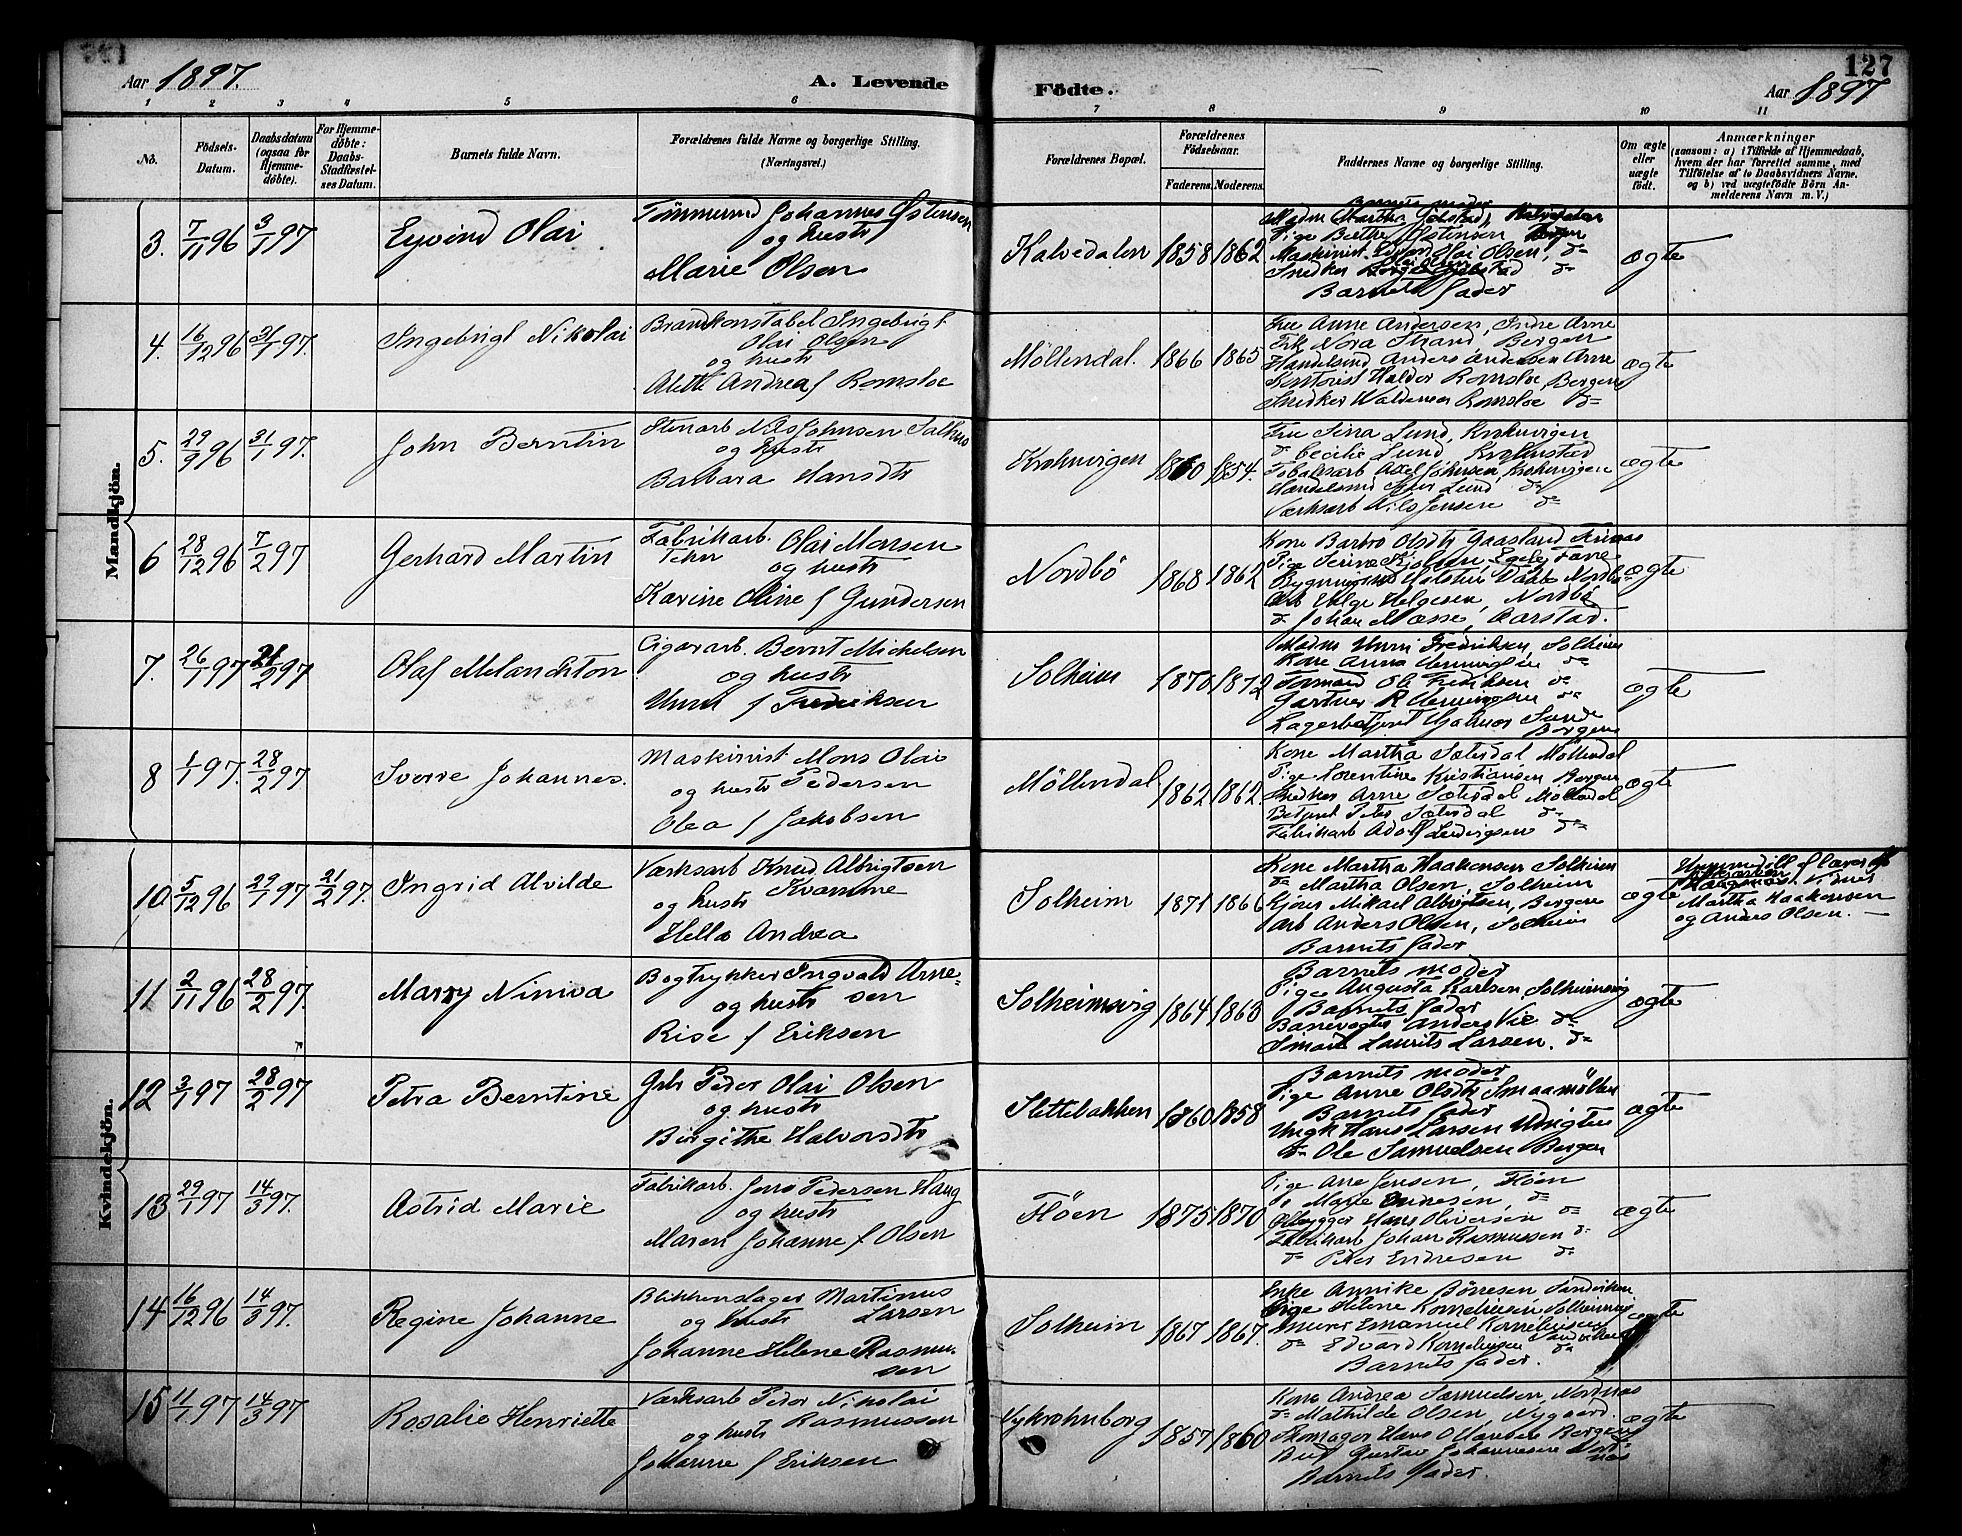 127
Aar 1897.
A. Levende
Födte.
Aar 1897
1 2 3 4 5 6 7 8 9 10 11
No.
Födsels-Datum.
Daabsdatum (ogsaa for Hjemme-döbte).
For Hjemme-döbte: Daabs-Stadfæstel-ses Datum.
Barnets fulde Navn.
Forældrenes fulde Navne og borgerlige Stilling.
(Næringsvei.)
Forældrenes Bopæl.
Forældrenes Födselsaar.
Faderens. Moderens.
Faddernes Navne og borgerlige Stilling.
Om ægte eller uægte født.
Anmærkninger
(saasom: a) i Tilfælde af Hjemmedaab,
hvem der har forrettet samme, med
Tilföielse af to Daabsvidners Navne.
og b) ved uægtefödte Börn An-
melderens Navn m. V.)
Mandkjön.
3. 7/11 96 3/1 97 Eyvind Olai
Tömmermd Johannes Østensen
og hustr
Marie Olsen
Kalvedalen 1858 1862
Barnets moder
Pige Berthe Østensen
Maskinist Olai Olsen, do
Snedker
Barnets fader
ægte
4. 16/12 96 31/1 97. Ingebrigt Nikolai
Brandkonstabel Ingebrigt
Olai Olsen
og hustr
Alette Andrea f Romsloe
Möllendal. 1866 1865
Fru Anne Andersen, Indre Arne
Frk Nora Strand, Bergen
Handelsmd Anders Andersen Arne
Kontorist Haldor Romsloe, Bergen
Snedker Waldemar Romsloe do
ægte
5. 29/9 96 31/1 97. John Berntin
Stenarb Nils Johnsen Salhus
og hustr
Barbara Hansdtr
Krohnvigen 1860 1854.
Fru Sina Lund, Krohnvigen
do Cecilie Lund, Krohnstad
Tobaksarb Axel Johnsen, Krohnvigen
Handelsmd Lund do
Værksarb Nils Jensen do
ægte
6 28/12 96 7/2 97 Gerhard Martin
Fabrikarb. Olai Monsen
og hustr
Karine Oline f Gundersen
Nordbö 1868 1862
Kone Barbro Olsdtr Gaasland
Pige Fane
Nordbö
Arb Helge Helgesen, Nordbö
do Johan Masse, Aarstad.
ægte
7. 26/1 97 21/2 97 Olaf Melanchton
Cigararb. Bernt Michelsen
og hustr
Unni f Fredriksen
Solheim 1870 1872
Madm Unni Fredriksen, Solheim
Kone Anna do
Formand Ole Fredriksen do
Gartner R do
Lagerbetjent Hjalmar Sunde
Bergen
ægte
8 1/1 97. 28/2 97 Sverre Johannes.
Maskinist Mons Olai
og hustr Pedersen
Olea f Jakobsen
Möllendal 1862 1862.
Kone Martha Sætesdal Möllendal
Pige Lorentine Kristiansen Bergen
Snedker Arne Sætesdal Möllendal
Betjent Peter Sætesdal do
Fabrikarb Adolf Ludvigsen do
ægte
Kvindekjön.
10 5/12 96 29/1 97 21/2 97. Ingrid Alvilde
Værksarb Knud Albrigtsen
og hustr Kvamme
Hella Andrea
Solheim 1871 1866
Kone Martha Haakonsen Solheim
do Martha Olsen, Solheim
Mikael Albrigtsen, Bergen
Arb Anders Olsen, Solheim
Barnets fader
ægte
Martha Haakonsen
og Anders Olsen.
11 2/11 96 28/2 97. Marry Niniva
Bogtrykker Ingvald Arne-
og hustr sen
Rise f Eriksen
Solheimsvig 1864 1860
Barnets moder
Pige Augusta Karlsen, Solheimsvig
Barnets fader
Banevogter Anders Vie do
Laurits Larsen. do
ægte
12 3/1 97 28/2 97 Petra Berntine
Gbr Peder Olai Olsen
og hustr
Birgithe Halvorsdtr
Slettebakken 1860 1858
Barnets moder
Pige Anne Olsdtr Smaamöllen
Barnets fader
Ungk Hans Larsen
do Ole Samuelsen Bergen
ægte
13 29/1 97 14/3 97. Astrid Marie
Fabrikarb. Jens Pedersen Haug
og hustr
Maren Johanne f Olsen
Flöen 1875 1870
Pige Ane Jensen, Flöen
do Marie Endresen, do
Ölbrygger Hans Oliversen do
Fabrikarb Johan Rasmussen do
do Peter Endresen do
ægte
14 16/12 96 14/3 97. Regine Johanne
Blikkenslager Martinus
og hustr Larsen
Johanne Helene Rasmus-
sen
Solheim 1867 1867.
Enke Annike Börresen Sandviken
Pige Helene Korneliussen Solheimsvig
Murer Emanuel Korneliussen
do Edvard Korneliussen Sandviken
Barnets fader.
ægte
15 11/1 97 14/3 97 Rosalie Henriette
Værksarb Peder Nikolai
og hustr Rasmussen
Johanne f Eriksen
Ny Krohnborg 1857 1860
Kone Andrea Samuelsen, Nordnæs
do Mathilde Olsen, Nygaard.
Skomager Hans Bergen
Gustav Johannesen Nord-
næs
Barnets fader.
ægte